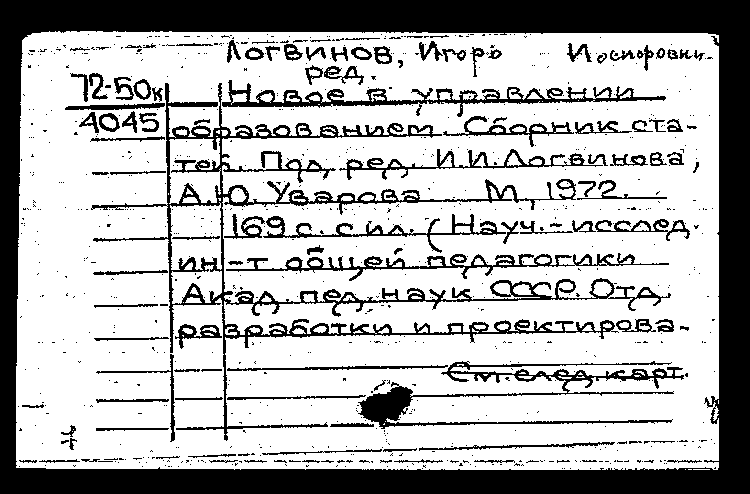 Логвинов, Игорь Иосифович
ред.
72-50к Новое в управлении
4045 образованием. Сборник ста-
тей. Под ред. И.И.Логвинова,
А.Ю. Уварова М, 1972.
169 с. с ил. (Науч.-исслед.
ин-т общей педагогики
Акад. пед. наук СССР. Отд.
разработки и проектирова-
См. след. карт.